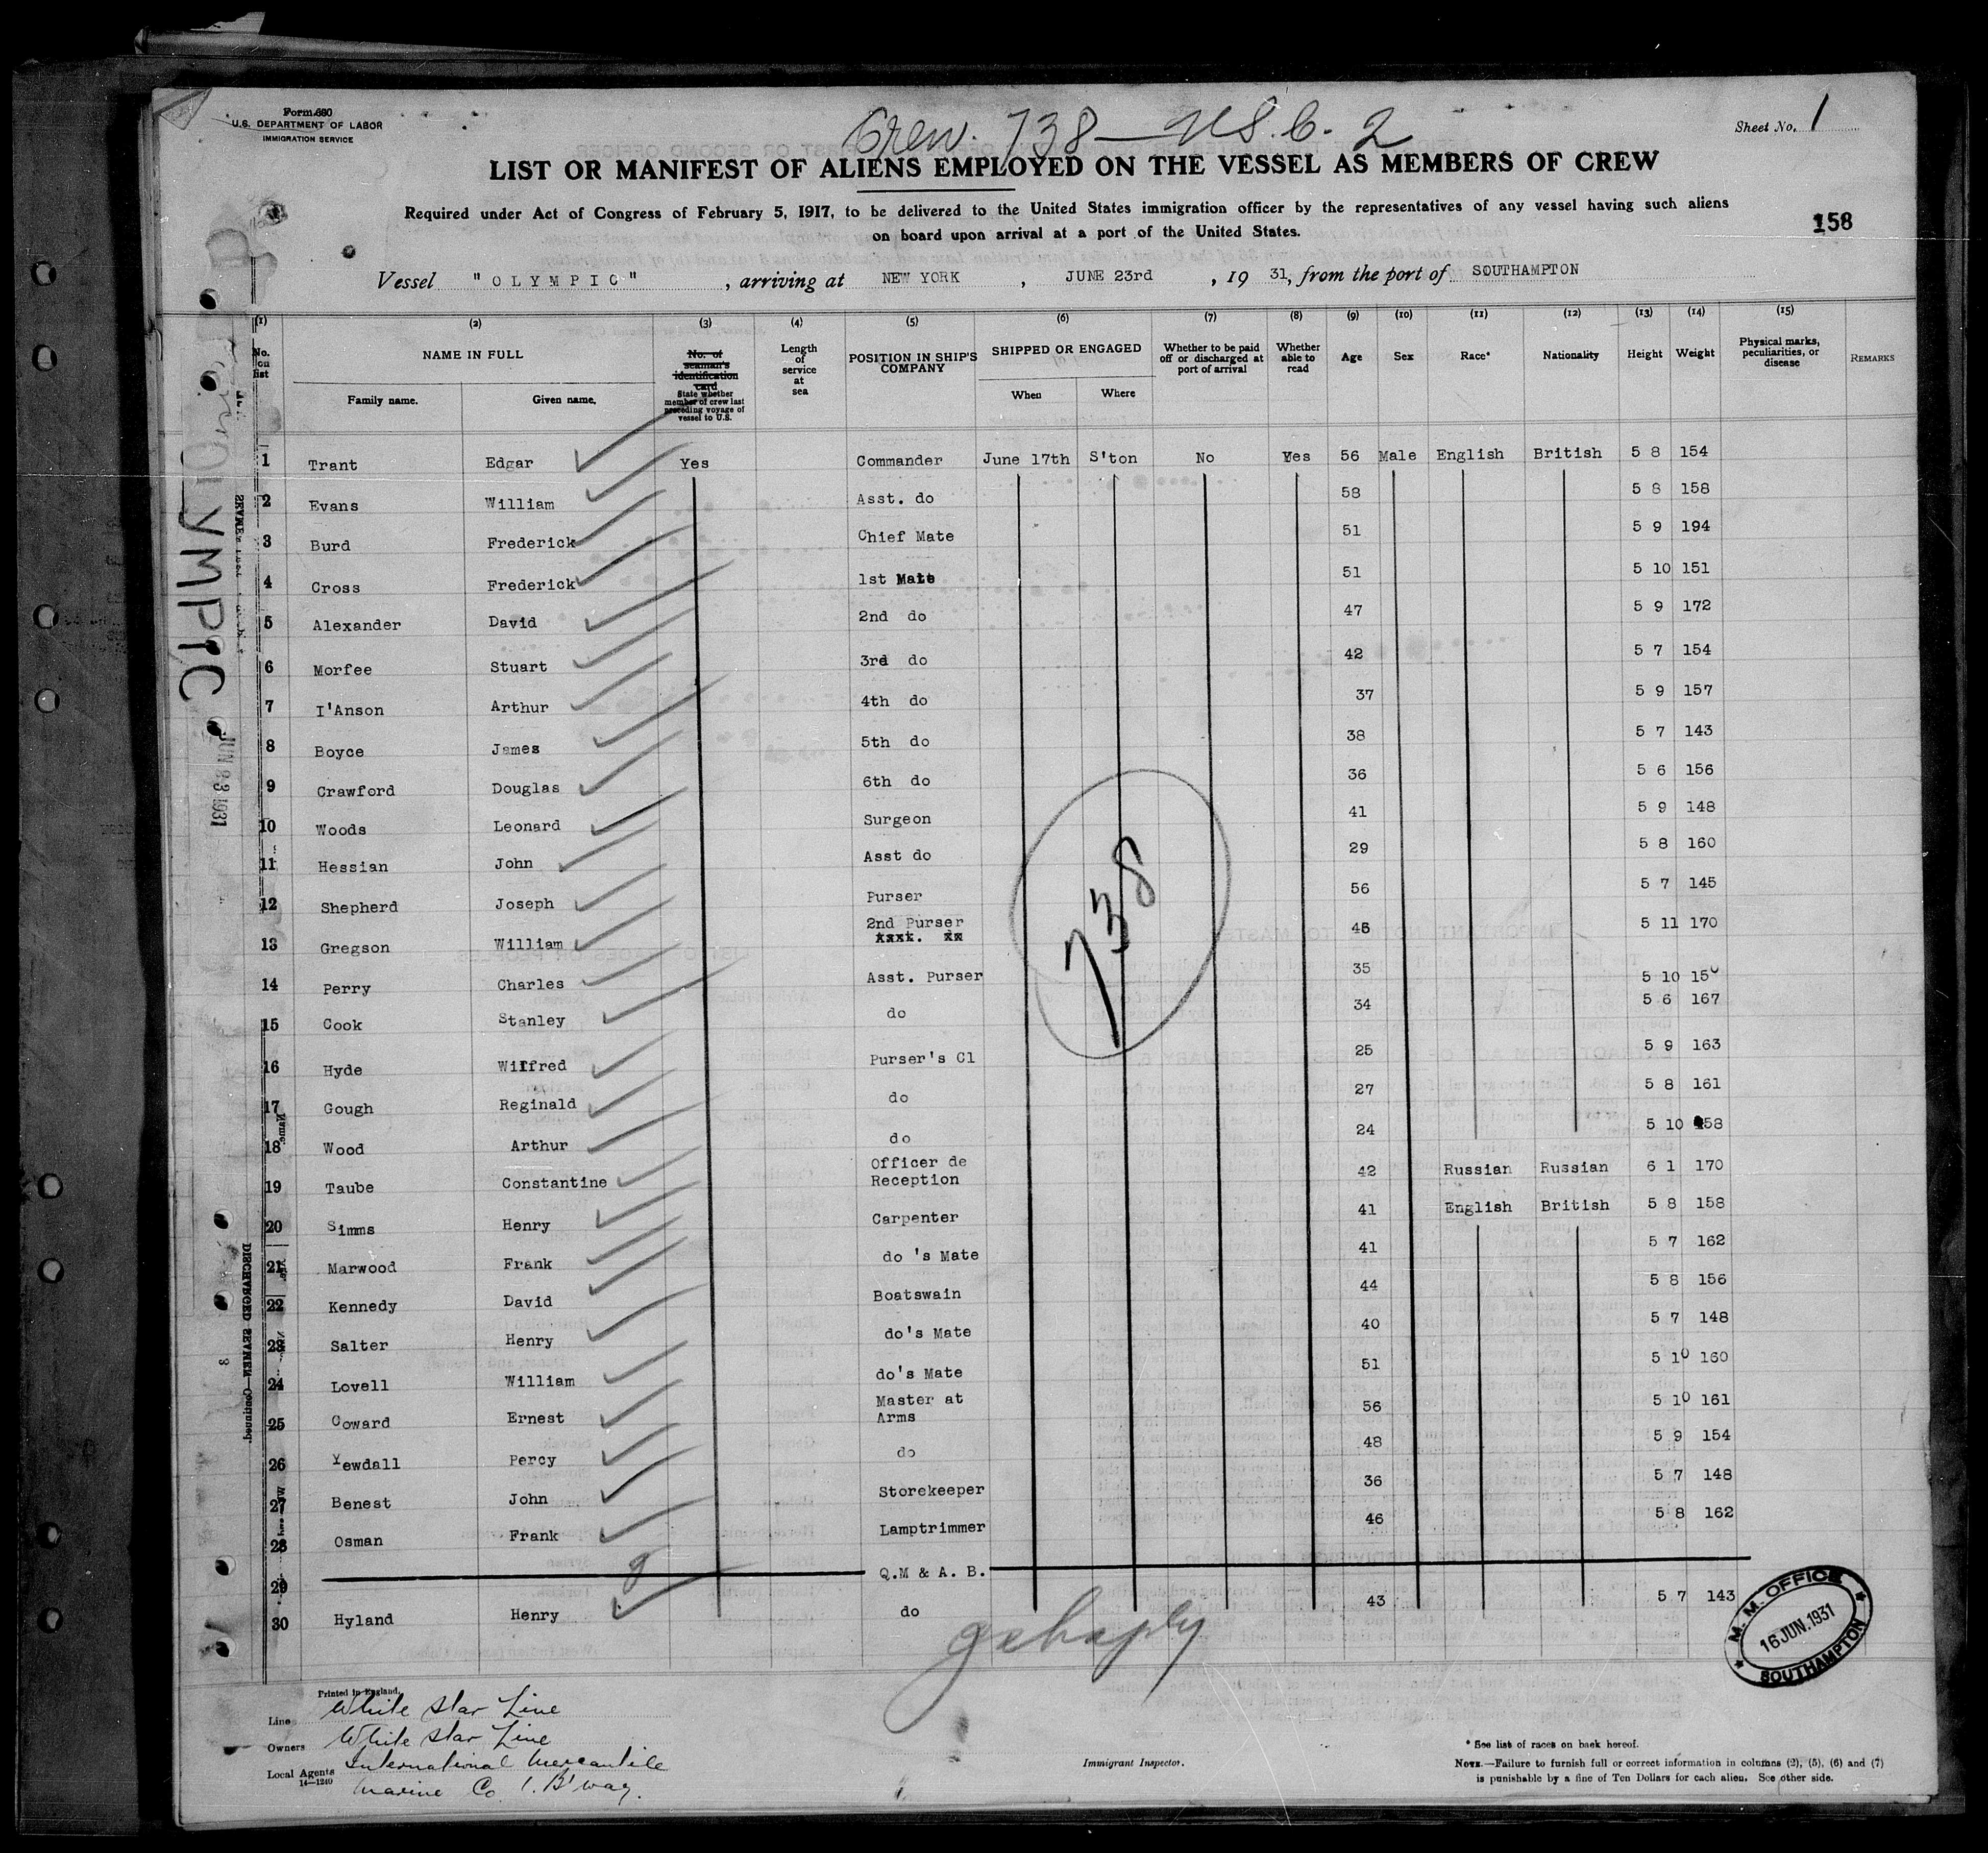 Form 680
U.S. DEPARTMENT OF LABOR
IMMIGRATION SERVICE
Crew. 738 — U.S.C. 2
Sheet No. 1
LIST OR MANIFEST OF ALIENS EMPLOYED ON THE VESSEL AS MEMBERS OF CREW
Required under Act of Congress of February 5, 1917, to be delivered to the United States immigration officer by the representatives of any vessel having such aliens
on board upon arrival at a port of the United States.
158
Vessel "OLYMPIC", arriving at NEW YORK, JUNE 23rd, 19 31, from the port of SOUTHAMPTON
(1) (2) (3) (4) (5) (6) (7) (8) (9) (10) (11) (12) (13) (14) (15)
No. on list
NAME IN FULL
Family name. Given name.
No. of seaman's identification card
State whether member of crew last preceding voyage of vessel to U.S.
Length of service at sea
POSITION IN SHIP'S COMPANY
SHIPPED OR ENGAGED
When Where
Whether to be paid off or discharged at port of arrival
Whether able to read
Age
Sex
Race*
Nationality
Height
Weight
Physical marks, peculiarities, or disease
REMARKS
1 Trant Edgar Yes Commander June 17th S'ton No Yes 56 Male English British 5 8 154
2 Evans William Asst. do 58 5 8 158
3 Burd Frederick Chief Mate 51 5 9 194
4 Cross Frederick 1st Mate 51 5 10 151
5 Alexander David 2nd do 47 5 9 172
6 Morfee Stuart 3rd do 42 5 7 154
7 I'Anson Arthur 4th do 37 5 9 157
8 Boyce James 5th do 38 5 7 143
9 Crawford Douglas 6th do 36 5 6 156
10 Woods Leonard Surgeon 41 5 9 148
11 Hessian John Asst do 29 5 8 160
12 Shepherd Joseph Purser 56 5 7 145
13 Gregson William 2nd Purser 46 5 11 170
14 Perry Charles Asst. Purser 35 5 10 150
15 Cook Stanley do 34 5 6 167
16 Hyde Wilfred Purser's Cl 25 5 9 163
17 Gough Reginald do 27 5 8 161
18 Wood Arthur do 24 5 10 158
19 Taube Constantine Officer de Reception 42 Russian Russian 6 1 170
20 Simms Henry Carpenter 41 English British 5 8 158
21 Marwood Frank do 's Mate 41 5 7 162
22 Kennedy David Boatswain 44 5 8 156
23 Salter Henry do's Mate 40 5 7 148
24 Lovell William do's Mate 51 5 10 160
25 Coward Ernest Master at Arms 56 5 10 161
26 Yewdall Percy do 48 5 9 154
27 Benest John Storekeeper 36 5 7 148
28 Osman Frank Lamptrimmer 46 5 8 162
29 Q.M & A. B.
30 Hyland Henry do 43 5 7 143
738
OLYMPIC
JUN 23 1931
DISCHARGED SEAMEN—Continued.
M. M. OFFICE
16 JUN. 1931
SOUTHAMPTON
Printed in England.
Line White Star Line
Owners White Star Line
Local Agents International Mercantile
14—1240
Marine Co 1. B'way.
Immigrant Inspector.
* See list of races on back hereof.
NOTE.—Failure to furnish full or correct information in columns (2), (5), (6) and (7)
is punishable by a fine of Ten Dollars for each alien. See other side.